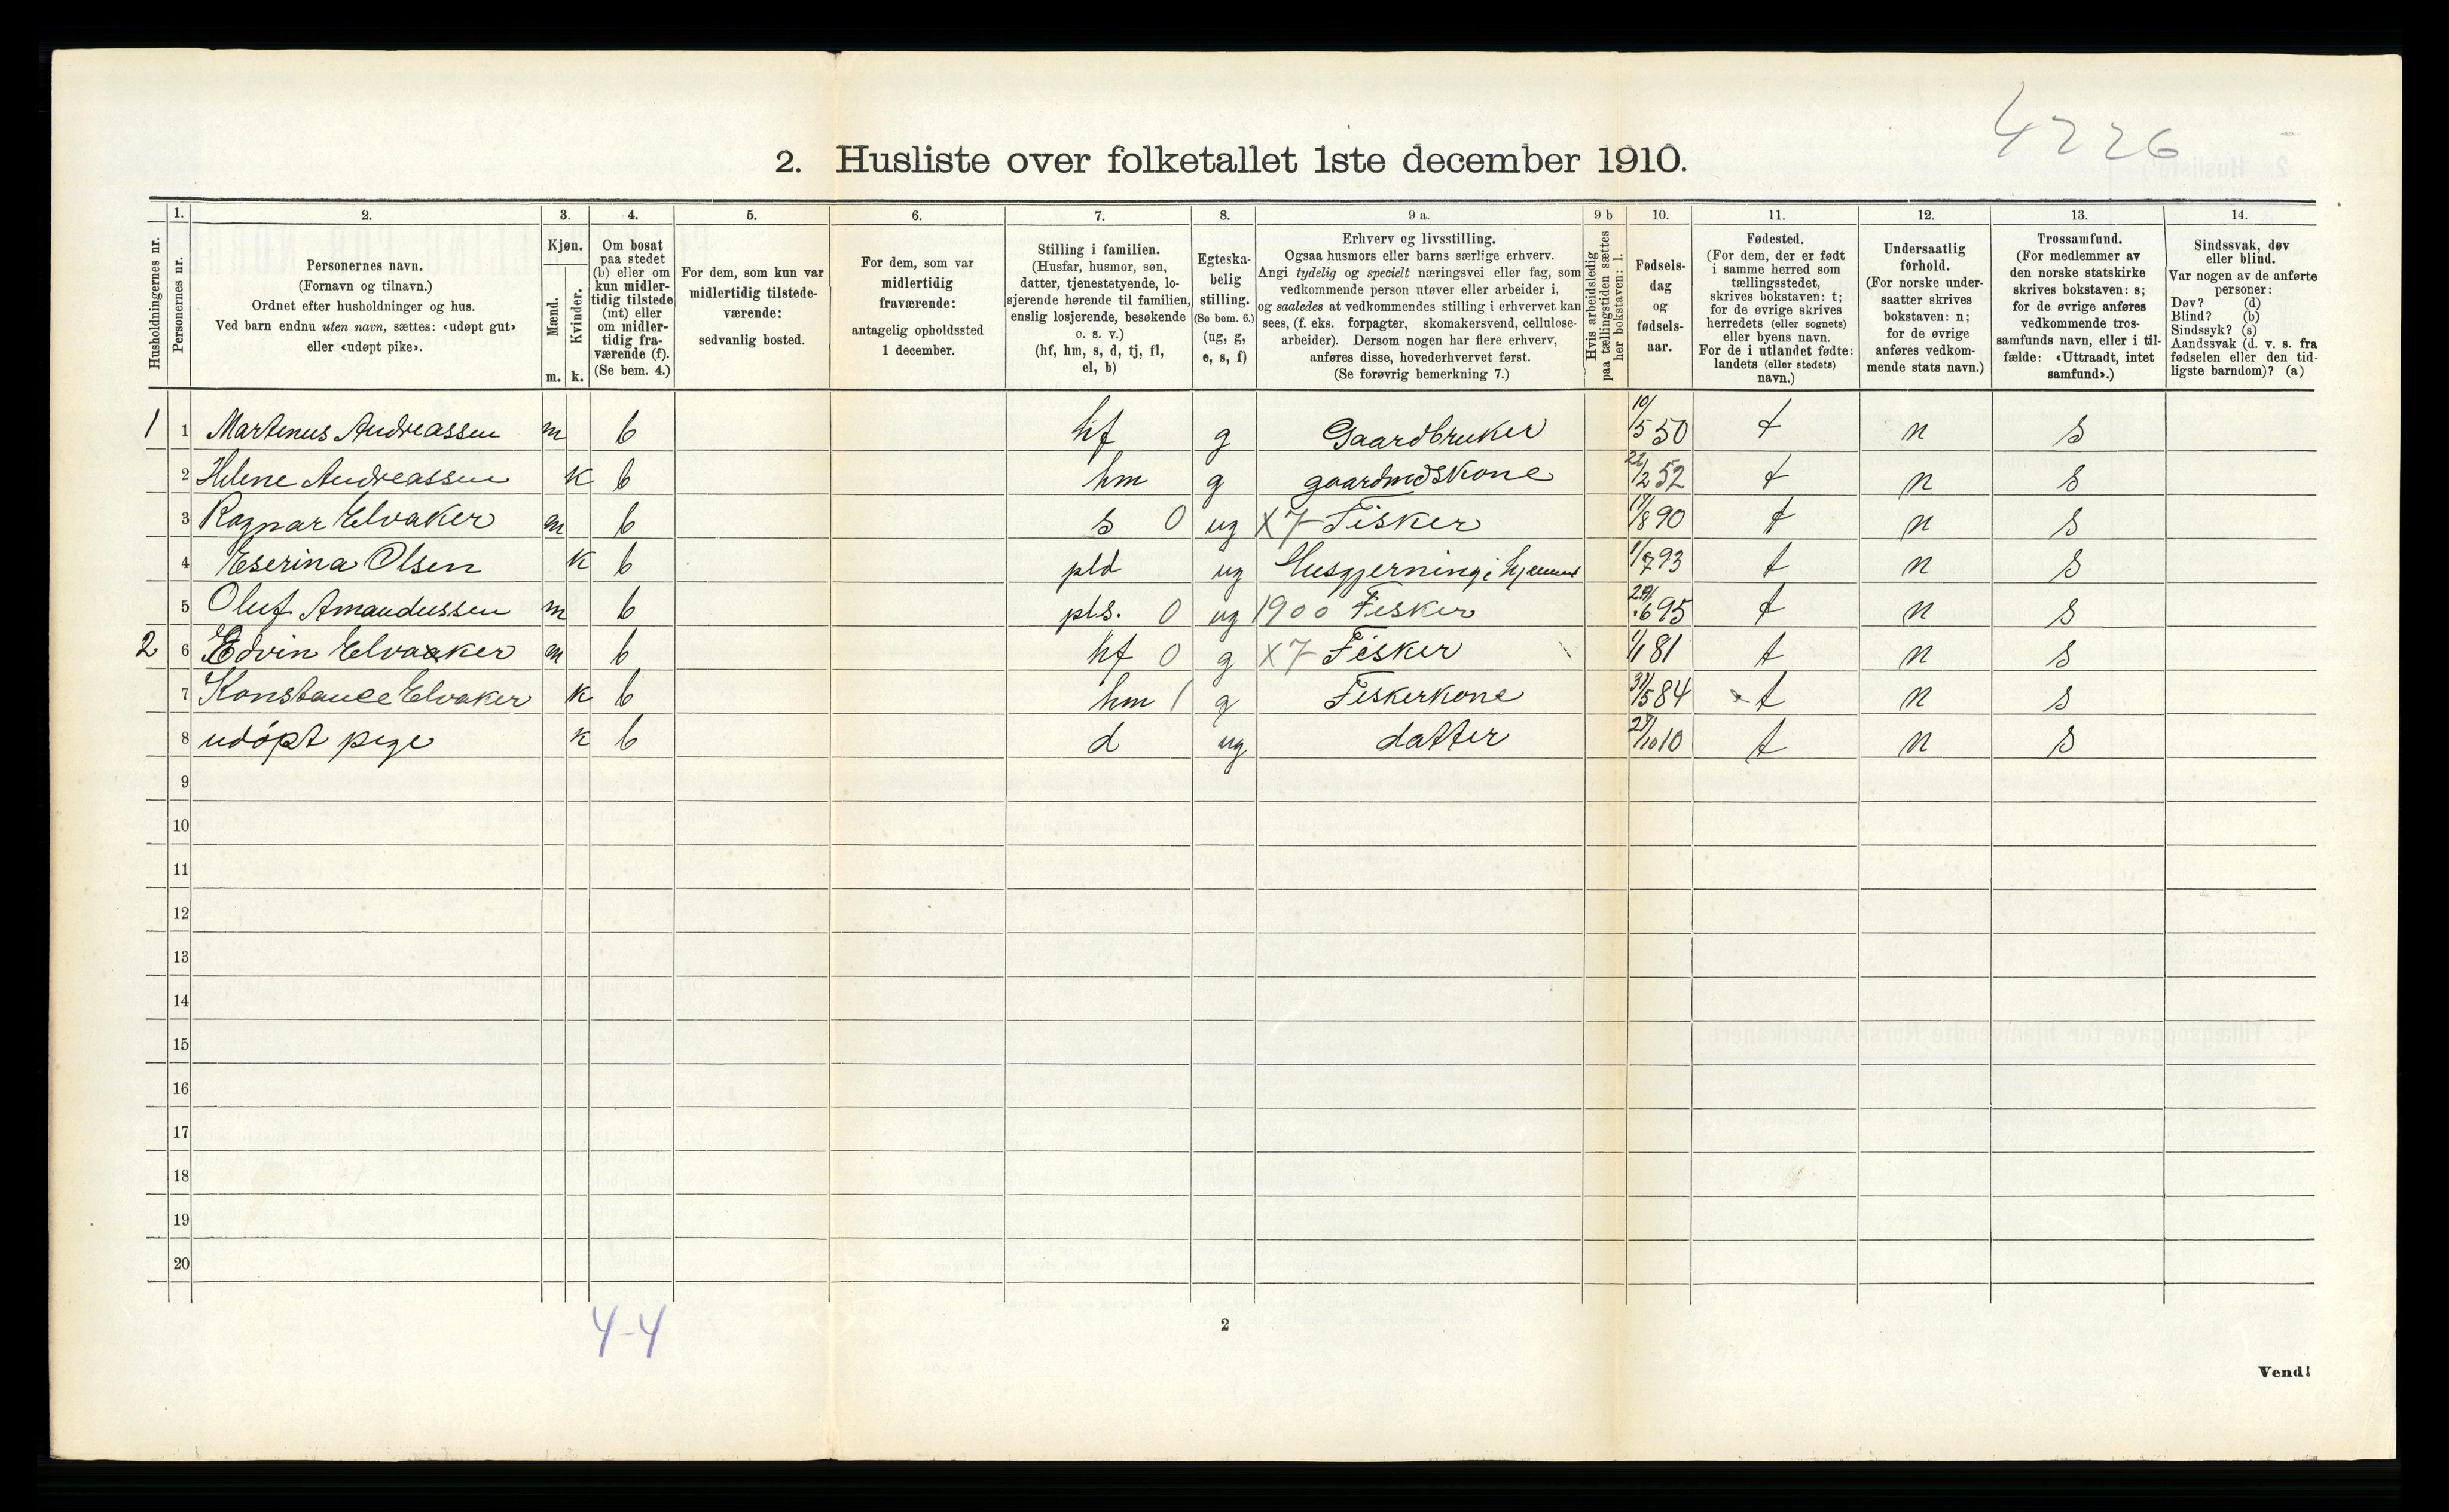 4226
2. Husliste over folketallet 1ste december 1910.
Husholdningernes nr.
1.
Personernes nr.
2.
Personernes navn.
(Fornavn og tilnavn.)
Ordnet efter husholdninger og hus.
Ved barn endnu uten navn, sættes: «udøpt gut»
eller «udøpt pike».
3.
Kjøn.
Mænd.
Kvinder.
m. k.
4.
Om bosat
paa stedet
(b) eller om
kun midler-
tidig tilstede
(mt) eller
om midler-
tidig fra-
værende (f).
(Se bem. 4.)
5.
For dem, som kun var
midlertidig tilstede-
værende:
sedvanlig bosted.
6.
For dem, som var
midlertidig
fraværende:
antagelig opholdssted
1 december.
7.
Stilling i familien.
(Husfar, husmor, søn,
datter, tjenestetyende, lo-
sjerende hørende til familien,
enslig losjerende, besøkende
o. s. v.)
(hf, hm, s, d, tj, fl,
el, b)
8.
Egteska-
belig
stilling.
(Se bem. 6.)
(ug, g,
e, s, f)
9 a.
Erhverv og livsstilling.
Ogsaa husmors eller barns særlige erhverv.
Angi tydelig og specielt næringsvei eller fag, som
vedkommende person utøver eller arbeider i,
og saaledes at vedkommendes stilling i erhvervet kan
sees, (f. eks. forpagter, skomakersvend, cellulose-
arbeider). Dersom nogen har flere erhverv,
anføres disse, hovederhvervet først.
(Se forøvrig bemerkning 7.)
9 b
Hvis arbeidsledig
paa tællingstiden sættes
her bokstaven: l.
10.
Fødsels-
dag
og
fødsels-
aar.
11.
Fødested.
(For dem, der er født
i samme herred som
tællingsstedet,
skrives bokstaven: t;
for de øvrige skrives
herredets (eller sognets)
eller byens navn.
For de i utlandet fødte:
landets (eller stedets)
navn.)
12.
Undersaatlig
forhold.
(For norske under-
saatter skrives
bokstaven: n;
for de øvrige
anføres vedkom-
mende stats navn.)
13.
Trossamfund.
(For medlemmer av
den norske statskirke
skrives bokstaven: s;
for de øvrige anføres
vedkommende tros-
samfunds navn, eller i til-
fælde: «Uttraadt, intet
samfund».)
14.
Sindssvak, døv
eller blind.
Var nogen av de anførte
personer:
Døv? (d)
Blind? (b)
Sindssyk? (s)
Aandssvak (d. v. s. fra
fødselen eller den tid-
ligste barndom)? (a)
1 1 Martenus Andreassen m b hf g Gaardbruker 10/5 50 t n s
2 Helene Andreassen k b hm g gaardmdskone 21/2 52 t n s
3 Ragnar Elvaker m b s 0 ug x7 Fisker 17/8 90 t n s
4 Eserina Olsen k b pld ug Husgjerning i hjemmet 1/7 93 t n s
5 Oluf Amandussen m b pls. 0 ug 1900 Fisker 29/6 95 t n s
2 6 Edvin Elvaaker m b hf 0 g x7 Fisker 1/1 81 t n s
7 Konstance Elvaker k b hm 1 g Fiskerkone 31/5 84 t n s
8 udöpt pige k b d ug datter 27/10 10 t n s
9
10
11
12
13
14
15
16
17
18
19
20
4-4
2
Vend!